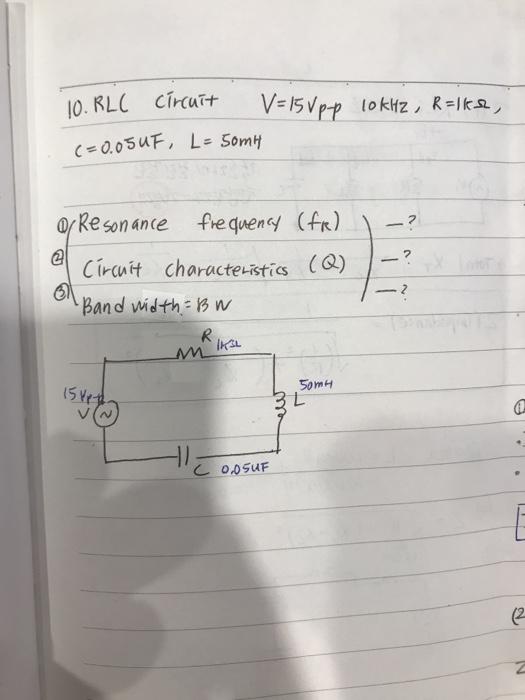 10. RLC circuit V=15Vp-p 10kHz, R=1kΩ,
C=0.05UF, L=50mH
① Resonance frequency (fR) -?
② Circuit characteristics (Q) -?
③ Band width = BW -?
R 1kΩ
15Vp-p
V
50mH
L
C 0.05UF
(2